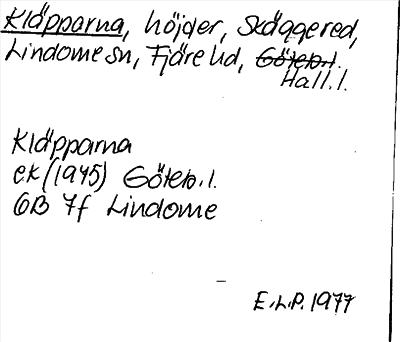 Kläpparna, höjder, Skäggered,
Lindome sn, Fjäre hd, Göteb.l.
Hall.l.
Kläpparna
ek (1945) Göteb.l.
GB 7f Lindome
E.L.P. 1977